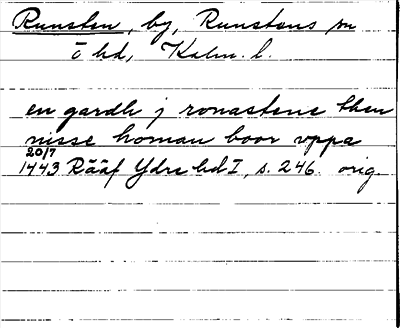 Runsten, by, Runstens sn
Ö hd, Kalm. l.
en gardh j ronastene then
nisse homan boor vppa
20/7
1443 Rääf Ydre hd I, s. 246. orig.